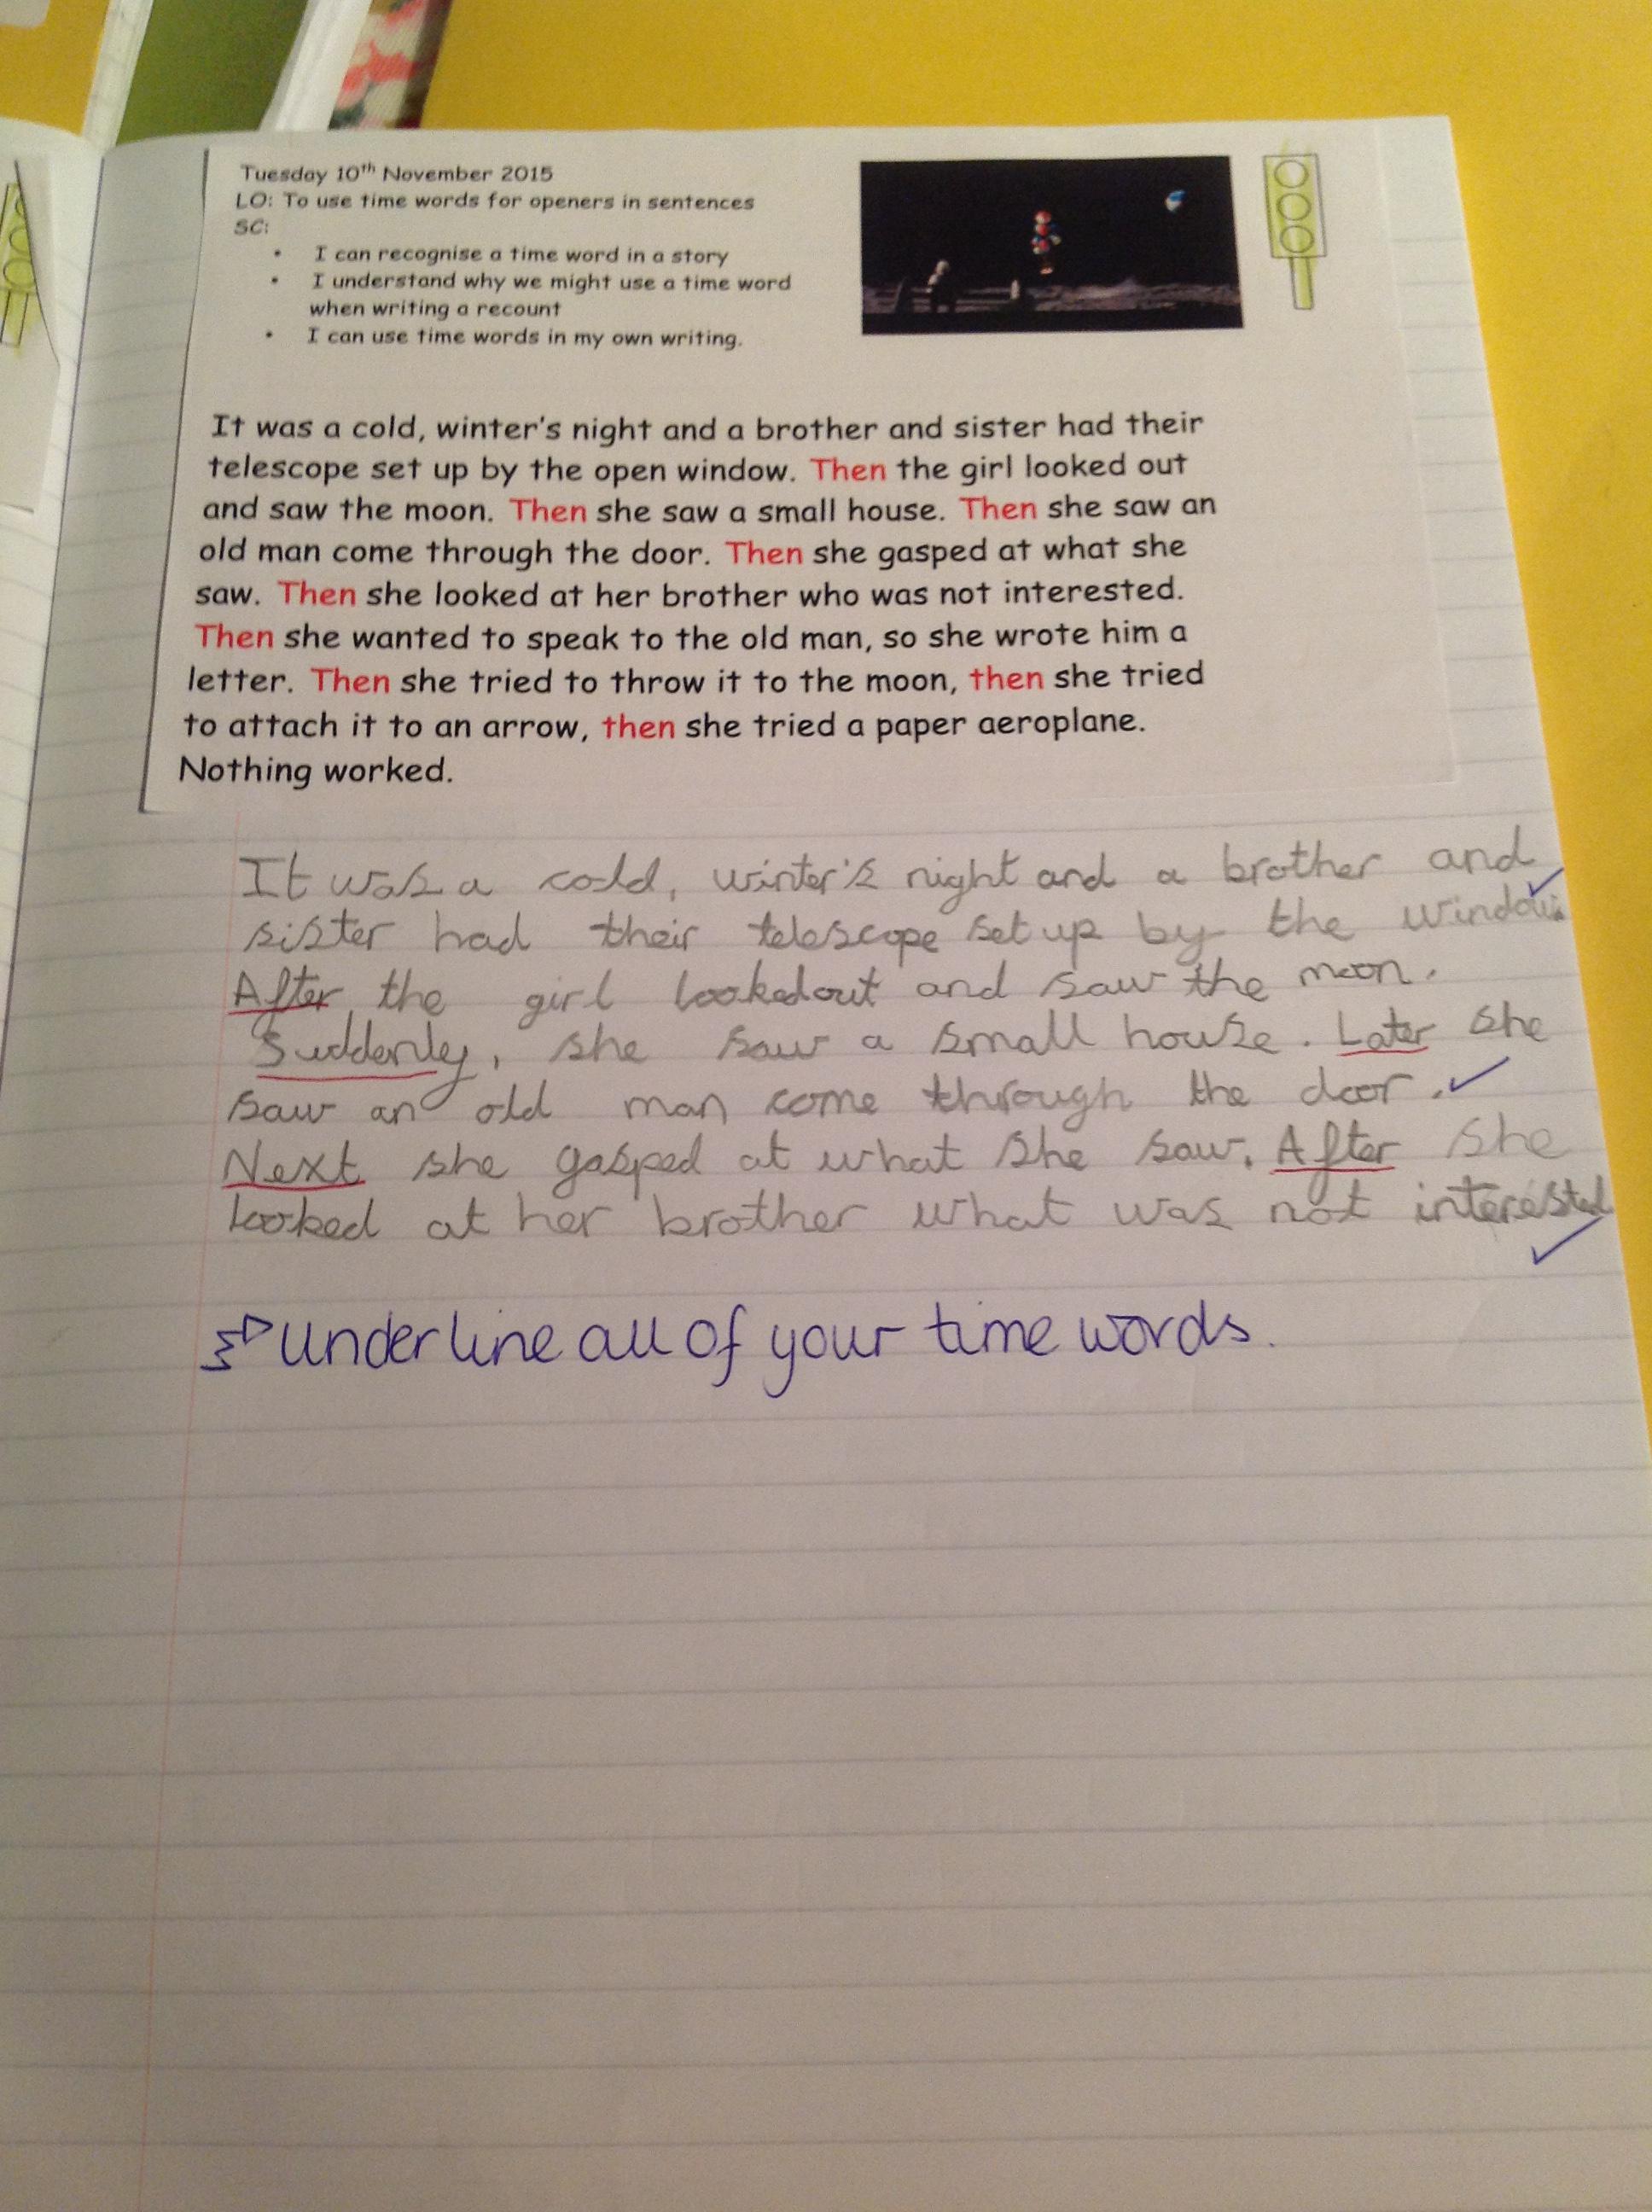 Tuesday 10th November 2015
LO: To use time words for openers in sentences
SC:
• I can recognise a time word in a story
• I understand why we might use a time word
when writing a recount
• I can use time words in my own writing.
It was a cold, winter's night and a brother and sister had their
telescope set up by the open window. Then the girl looked out
and saw the moon. Then she saw a small house. Then she saw an
old man come through the door. Then she gasped at what she
saw. Then she looked at her brother who was not interested.
Then she wanted to speak to the old man, so she wrote him a
letter. Then she tried to throw it to the moon, then she tried
to attach it to an arrow, then she tried a paper aeroplane.
Nothing worked.
It was a cold, winter's night and a brother and
sister had their telescope set up by the window.
After the girl looked out and saw the moon.
Suddenley, she saw a small house. Later she
saw an old man come through the door.
Next she gasped at what she saw. After she
looked at her brother what was not interested
Underline all of your time words.